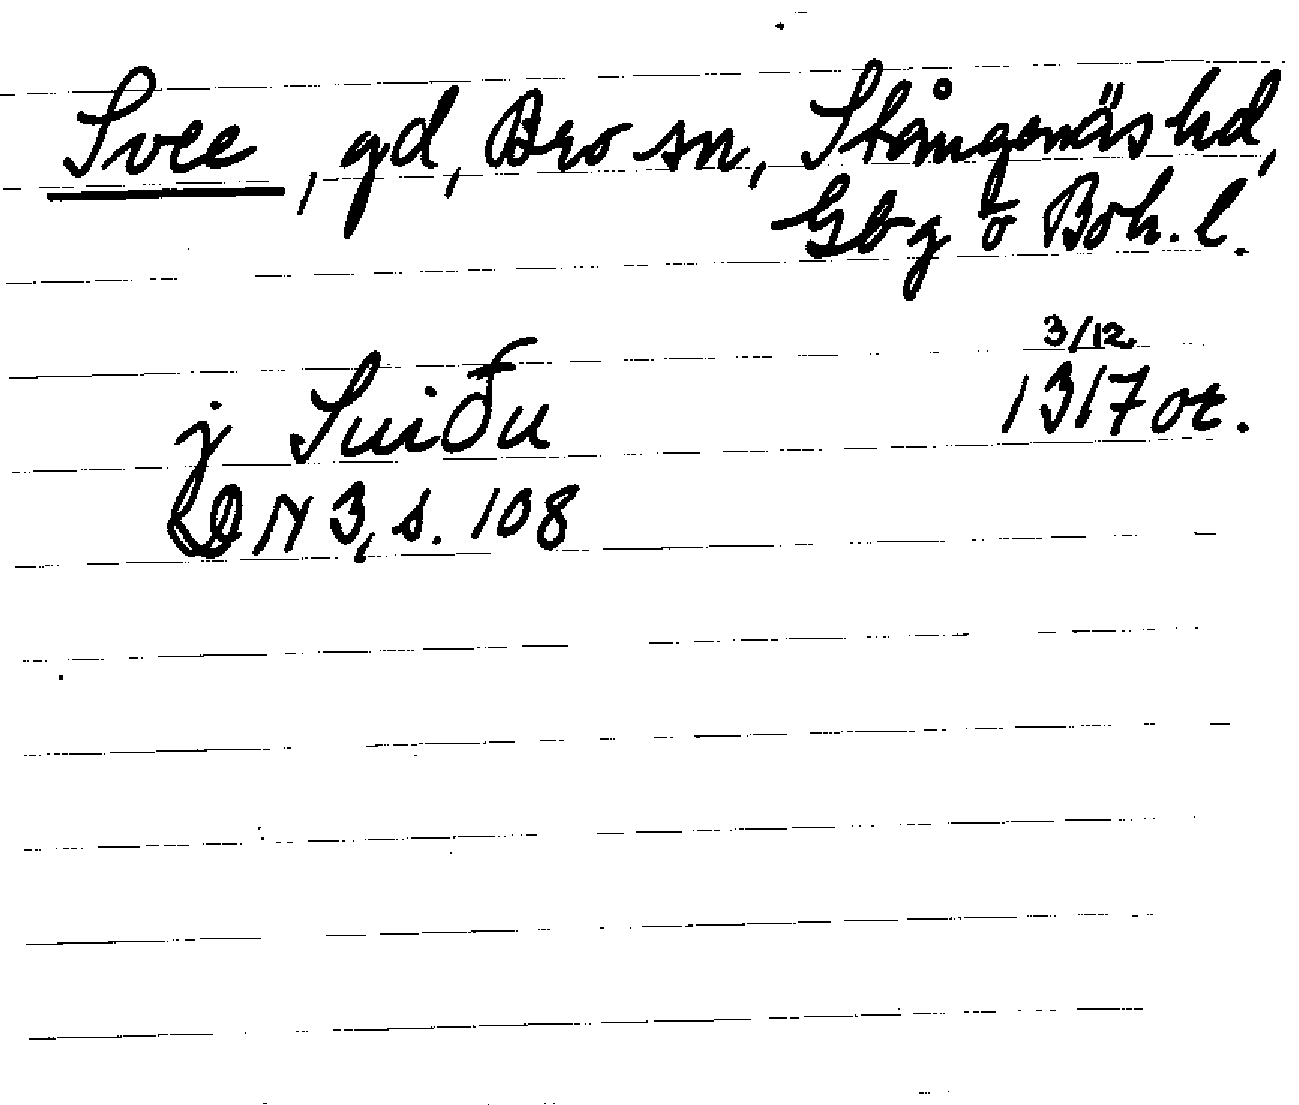 Svee, gd, Bro sn, Stångenäs hd,
Gbg o Boh. l.
3/12
j Suiðu 1317 or.
DN 3, s. 108